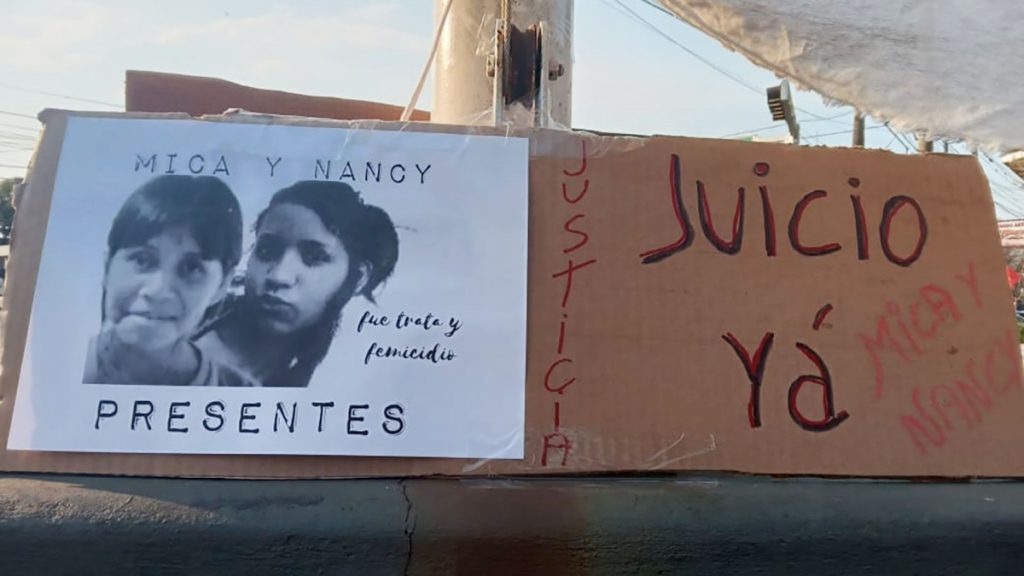 MICA Y NANCY
fue trata y
femicidio
PRESENTES
JUSTICIA
Juicio
Yá
MICA Y
NANCY